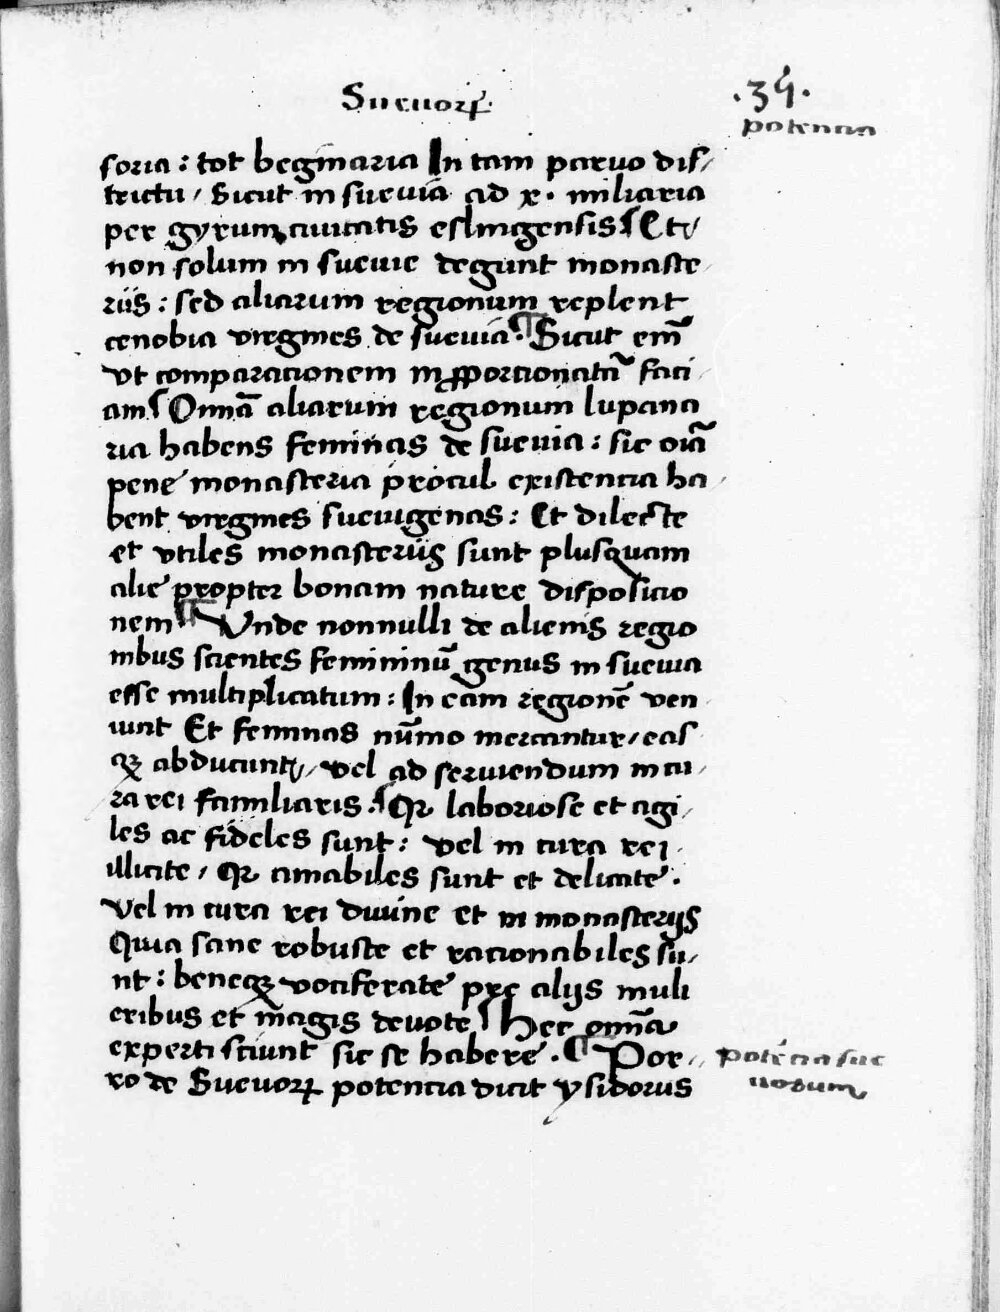 Sueuoꝝ·
·39·
potencia
soria : tot beginaria In tam paruo dis⸗
trictu / Sicut in sueuia ad x · miliaria
per gyrum ciuitatis eslingensis Et
non solum in sueuie degunt monaste
riis : sed aliarum regionum replent
cenobia virgines de sueuia · ¶ Sicut em̄
vt comparacionem inꝓporcionatā faci
am Omnā aliarum regionum lupana
ria habens feminas de sueuia : sic oīa
pene monasteria procul existencia ha
bent virgines sueuigenas : Et dilecte
et vtiles monasteriis sunt plusquam
alie propter bonam nature disposicio
nem ¶ Vnde nonnulli de alienis regio
nibus scientes femininū genus in sueuia
esse multiplicatum : In eam regionē ven
iunt Et feminas nūmo mercantur / eas
qꝫ abducunt / vel ad seruiendum in cu
ra rei familiaris · Qꝛ laboriose et agi
les ac fideles sunt : vel in cura rei
illicite / Qꝛ amabiles sunt et delicate ·
Vel in cura rei diuine et in monasterijs
Quia sane robuste et racionabiles su
nt : beneqꝫ vociferate pre alijs muli
eribus et magis deuote Hec omīa
experti sciunt sic se habere · ¶ Por
ro de Sueuoꝝ potencia dicit ysidorus
potēcia sue
uorum